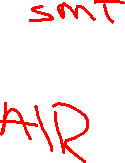 SMT
AIR